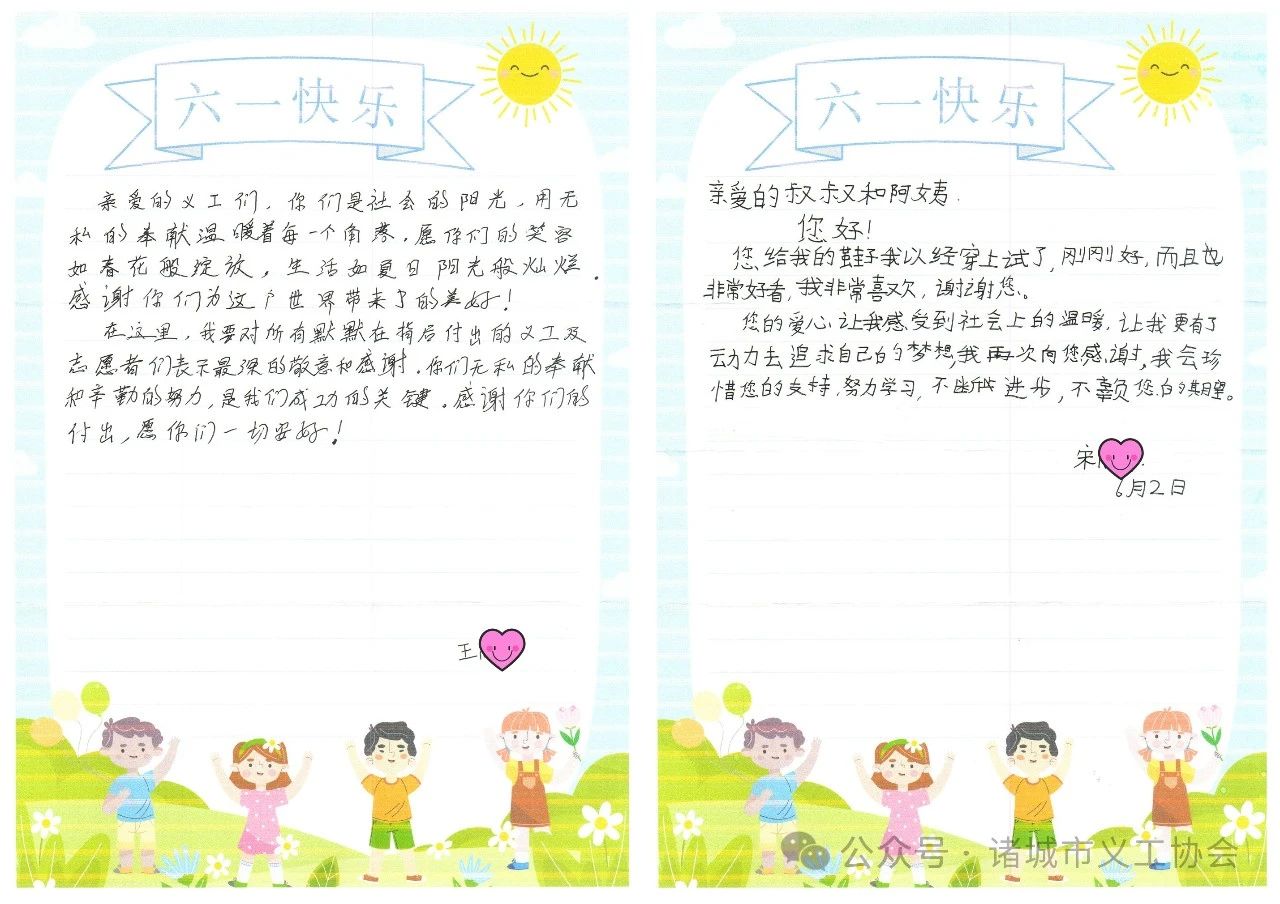 六一快乐
亲爱的义工们，你们是社会的阳光，用无
私的奉献温暖着每一个角落，愿你们的笑容
如春花般绽放，生活如夏日阳光般灿烂。
感谢你们为这个世界带来了的美好！
在这里，我要对所有默默在背后付出的义工及
志愿者们表示最深的敬意和感谢。你们无私的奉献
和辛勤的努力，是我们成功的关键。感谢你们的
付出，愿你们一切安好！
王
六一快乐
亲爱的叔叔和阿姨.
您好！
您给我的鞋子我以经穿上试了，刚刚好，而且也
非常好看，我非常喜欢，谢谢您。
您的爱心让我感受到社会上的温暖，让我更有了
动力去追求自己的梦想，我再次向您感谢，我会珍
惜您的支持，努力学习，不断进步，不辜负您的期望。
宋
6月2日
公众号·诸城市义工协会